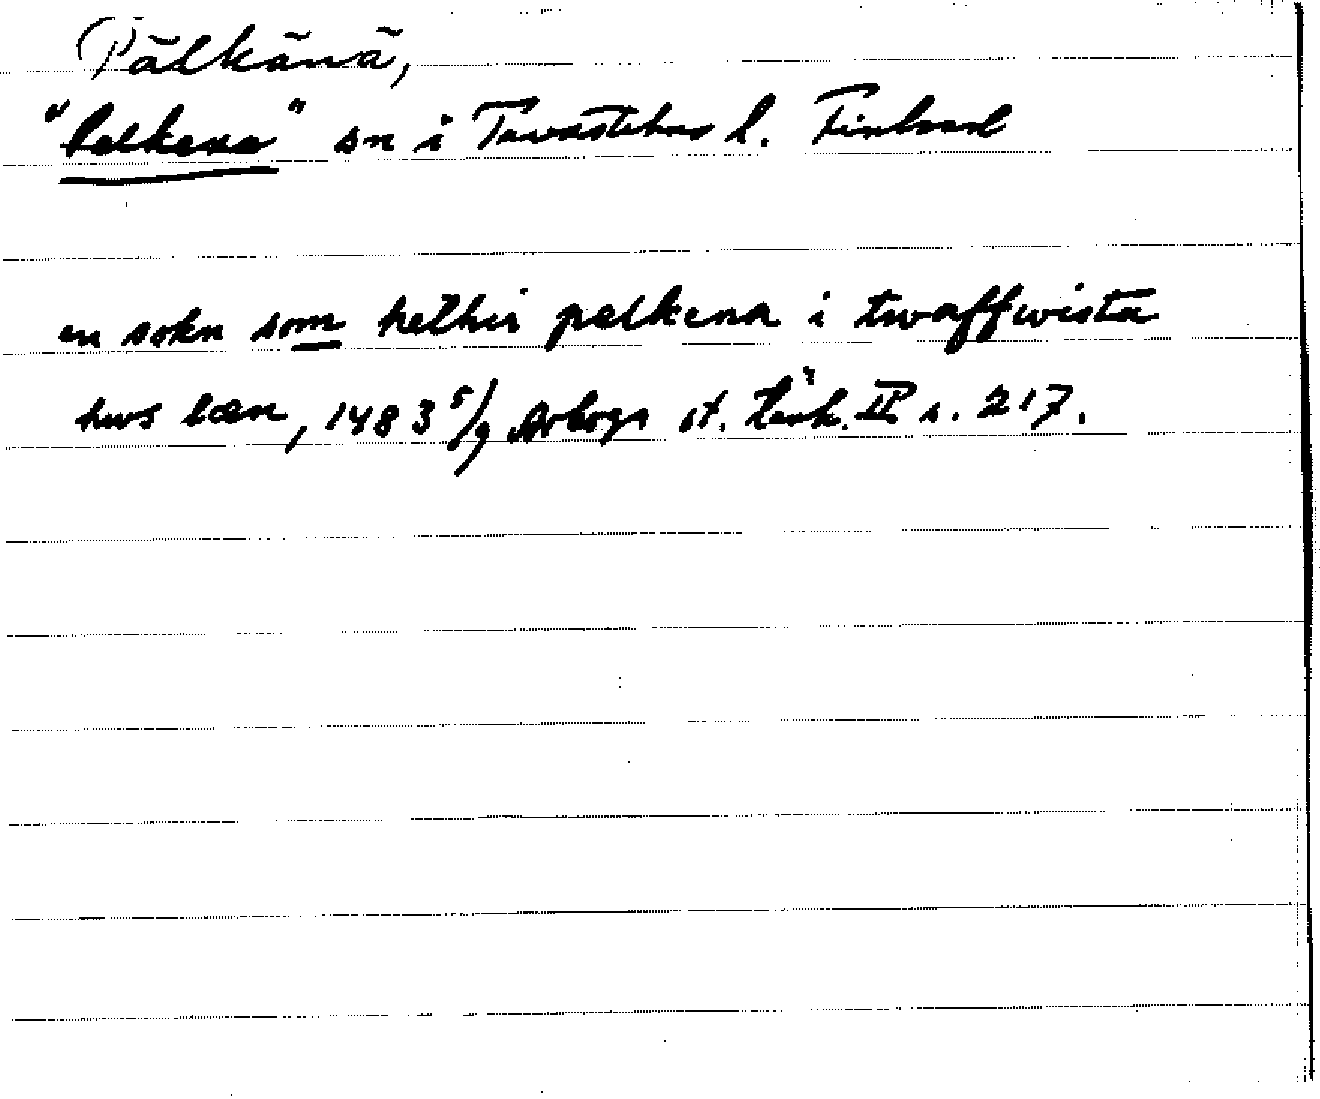 Pälkänä,
"Palkena" sn i Tavastehus l. Finland
en sokn som hethir palkena i twaffwista
hws læn, 1483 5/9 Arboga st. Tänk. II s. 217.